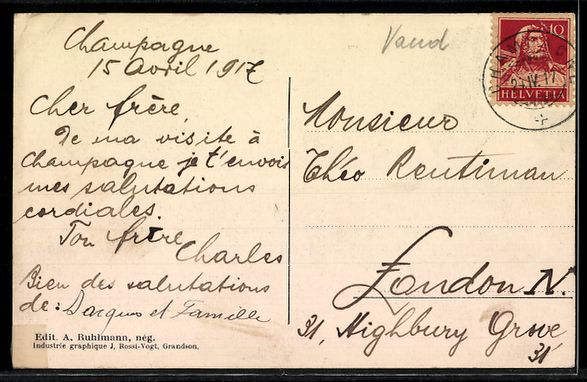 Champagne
15 avril 1917
Cher frère,
De ma visite à
Champagne je t'envois
mes salutations
cordiales.
Ton frère
Charles
Bien des salutations
de: Jacques et Famille
Edit. A. Ruhlmann, nég.
Industrie graphique J. Rossi-Vogt, Grandson.
Vaud
10
HELVETIA
Monsieur
Théo Reutiman
London N.
31, Highbury Grove
31